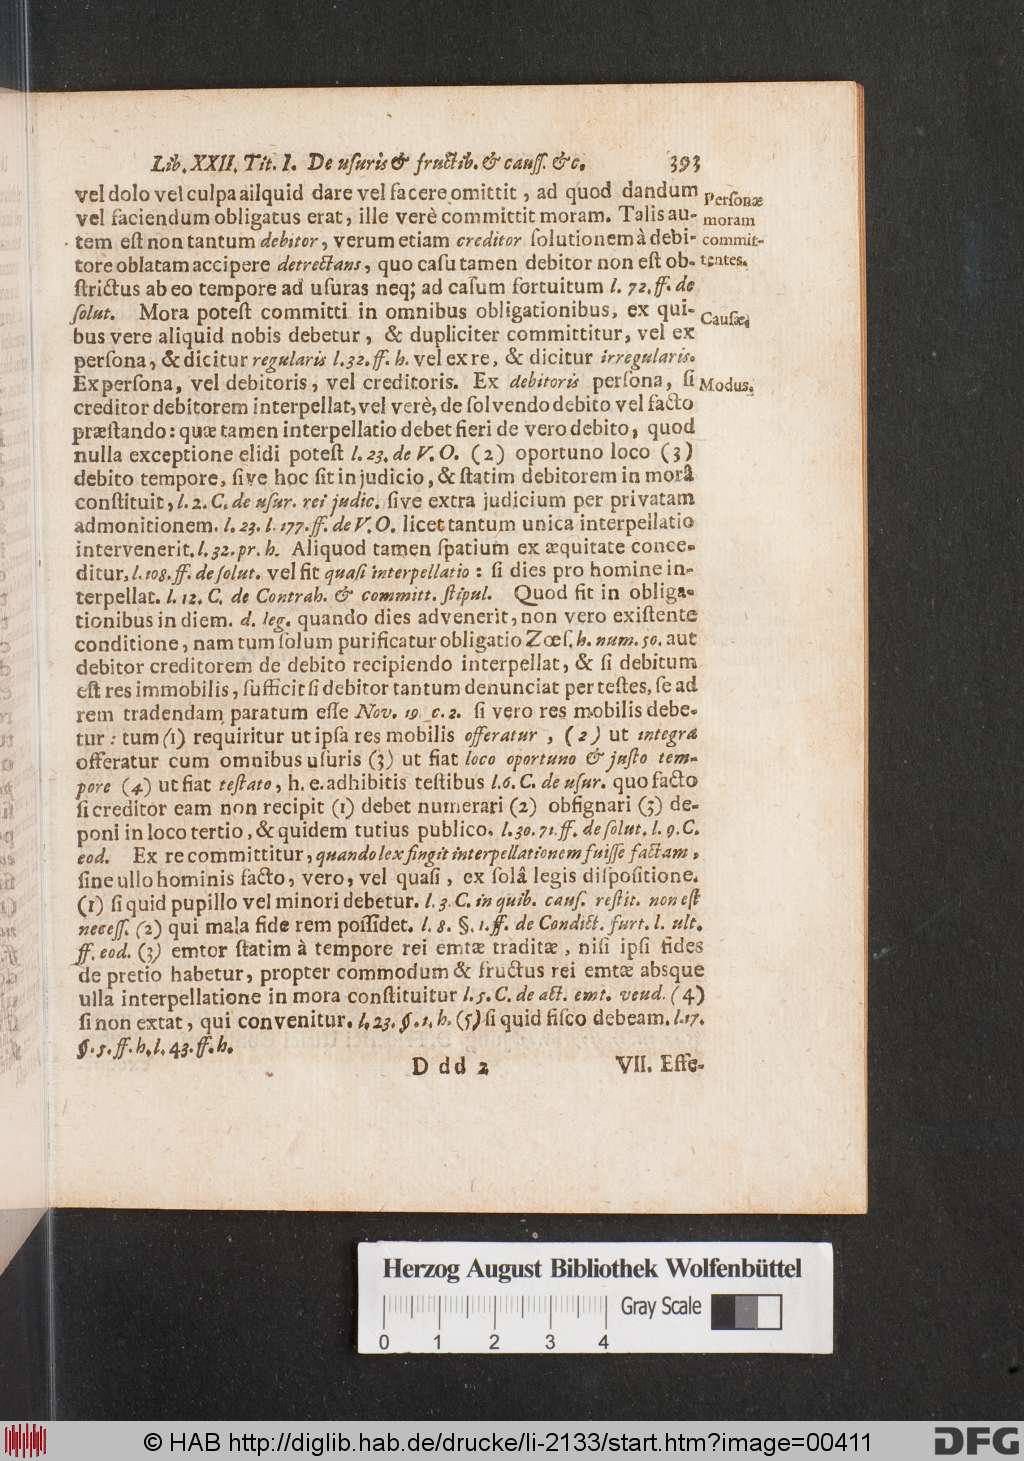 Lib. XXII. Tit. I. De uſuris & fructib. & cauſſ. &c. 393
vel dolo vel culpa ailquid dare vel facere omittit, ad quod dandum
vel faciendum obligatus erat, ille verè committit moram. Talis au-
tem eſt non tantum debitor, verum etiam creditor ſolutionem à debi-
tore oblatam accipere detrectans, quo caſu tamen debitor non eſt ob-
ſtrictus ab eo tempore ad uſuras neq; ad caſum fortuitum l. 72. ff. de
ſolut. Mora poteſt committi in omnibus obligationibus, ex qui-
bus vere aliquid nobis debetur, & dupliciter committitur, vel ex
perſona, & dicitur regularis l. 32. ff. h. vel ex re, & dicitur irregularis.
Ex perſona, vel debitoris, vel creditoris. Ex debitoris perſona, ſi
creditor debitorem interpellat, vel verè, de ſolvendo debito vel facto
præſtando: quæ tamen interpellatio debet fieri de vero debito, quod
nulla exceptione elidi poteſt l. 23. de V. O. (2) oportuno loco (3)
debito tempore, ſive hoc ſit in judicio, & ſtatim debitorem in morâ
conſtituit, l. 2. C. de uſur. rei judic. ſive extra judicium per privatam
admonitionem. l. 23. l. 177. ff. de V. O. licet tantum unica interpellatio
intervenerit. l. 32. pr. h. Aliquod tamen ſpatium ex æquitate conce-
ditur, l. 108. ff. de ſolut. vel fit quaſi interpellatio: ſi dies pro homine in-
terpellat. l. 12. C. de Contrah. & committ. ſtipul. Quod fit in obliga-
tionibus in diem. d. leg. quando dies advenerit, non vero exiſtente
conditione, nam tum ſolum purificatur obligatio Zœſ. h. num. 50. aut
debitor creditorem de debito recipiendo interpellat, & ſi debitum
eſt res immobilis, ſufficit ſi debitor tantum denunciat per teſtes, ſe ad
rem tradendam paratum eſſe Nov. 19. c. 2. ſi vero res mobilis debe-
tur: tum (1) requiritur ut ipſa res mobilis offeratur, (2) ut integra
offeratur cum omnibus uſuris (3) ut fiat loco oportuno & juſto tem-
pore (4) ut fiat teſtato, h. e. adhibitis teſtibus l. 6. C. de uſur. quo facto
ſi creditor eam non recipit (1) debet numerari (2) obſignari (3) de-
poni in loco tertio, & quidem tutius publico. l. 30. 71. ff. de ſolut. l. 9. C.
eod. Ex re committitur, quando lex fingit interpellationem fuiſſe factam,
ſine ullo hominis facto, vero, vel quaſi, ex ſolâ legis diſpoſitione.
(1) ſi quid pupillo vel minori debetur. l. 3. C. in quib. cauſ. reſtit. non eſt
neceſſ. (2) qui mala fide rem poſſidet. l. 8. §. 1. ff. de Condict. furt. l. ult.
ff. eod. (3) emtor ſtatim à tempore rei emtæ traditæ, niſi ipſi fides
de pretio habetur, propter commodum & fructus rei emtæ absque
ulla interpellatione in mora conſtituitur l. 5. C. de act. emt. vend. (4)
ſi non extat, qui convenitur. l. 23. §. 1. h. (5) ſi quid fiſco debeam. l. 17.
§. 5. ff. h. l. 43. ff. h.
D dd 2 VII. Effe-
Perſonæ
moram
commit-
tentes.
Cauſæ.
Modus.
Herzog August Bibliothek Wolfenbüttel
0 1 2 3 4 Gray Scale
© HAB http://diglib.hab.de/drucke/li-2133/start.htm?image=00411
DFG